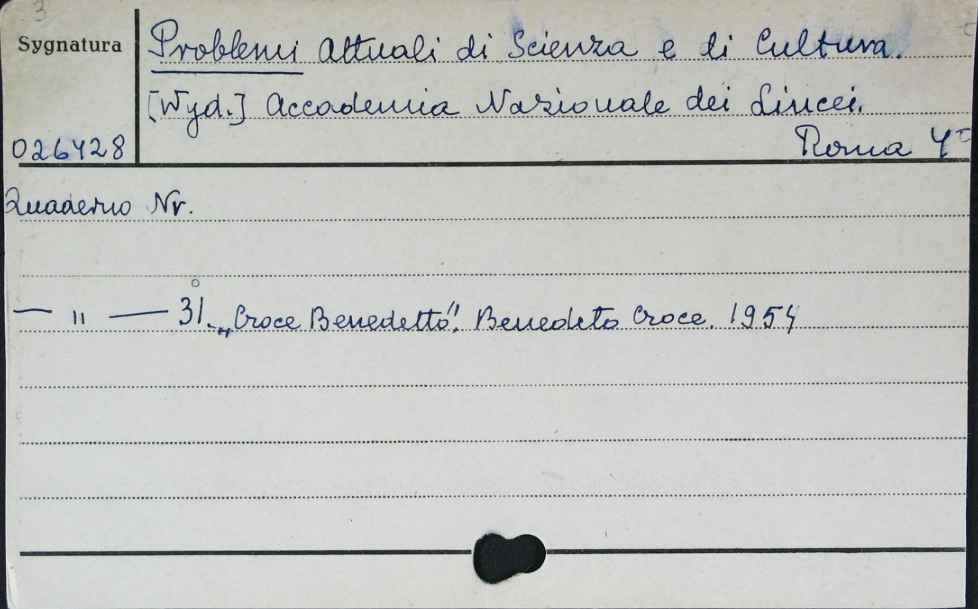 3
Sygnatura
Problemi Attuali di Scienza e di Cultura.
[Wyd.] Accademia Nazionale dei Lincei.
026428
Roma 4°
Quaderno Nr.
— " — 31. „Croce Benedetto". Benedeto Croce. 1954